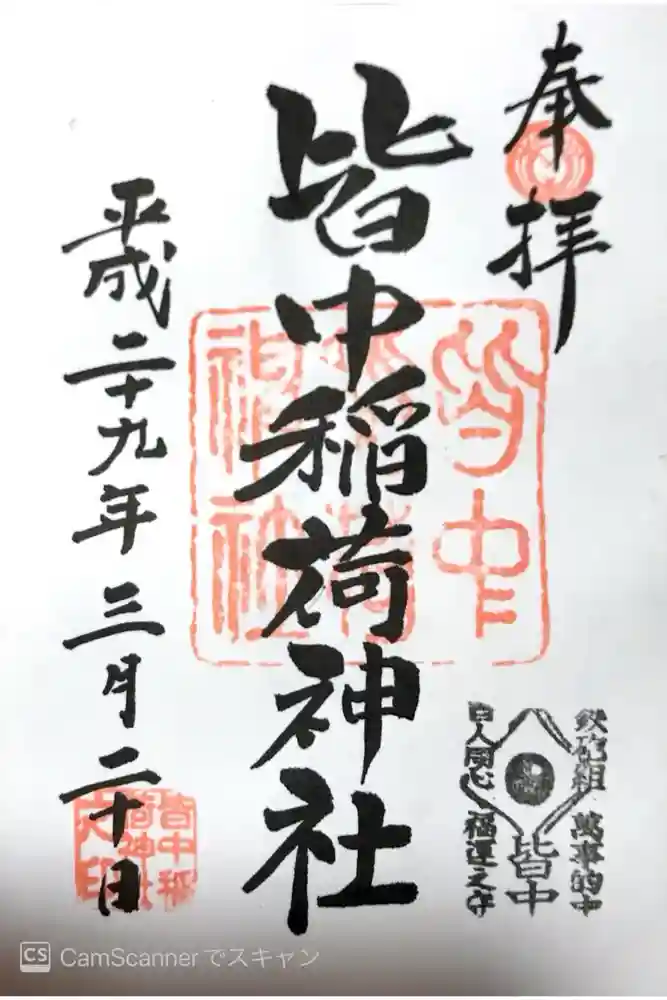 奉拝
皆中稲荷神社
平成二十九年三月二十日
皆中稲荷神社
鉄砲組 萬事的中
皆中
百人同心 福運之守
皆中稲荷神社之印
CS CamScannerでスキャン